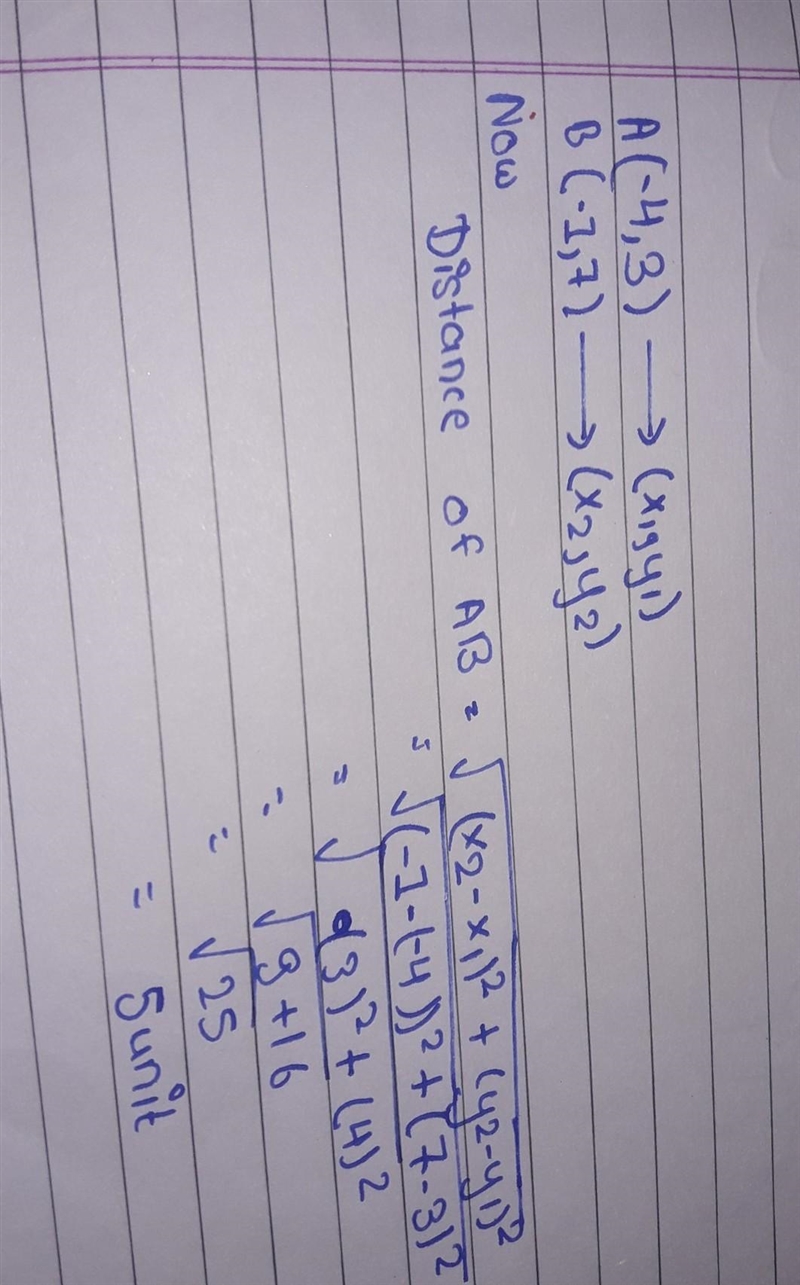 A(-4,3) → (x1,y1)
B(-1,7) → (x2,y2)
Now
Distance of AB = √(x2-x1)² + (y2-y1)²
= √(-1-(-4))² + (7-3)²
= √(3)² + (4)²
= √9+16
= √25
= 5unit